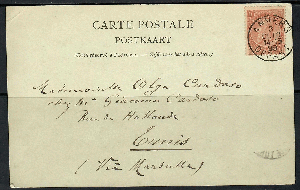 CARTE POSTALE
POSTKAART
Mademoiselle Olga Cardoso
chez Mr Giacomo Cardoso
Rue de Hollande
Tunis
(Via Marseille)